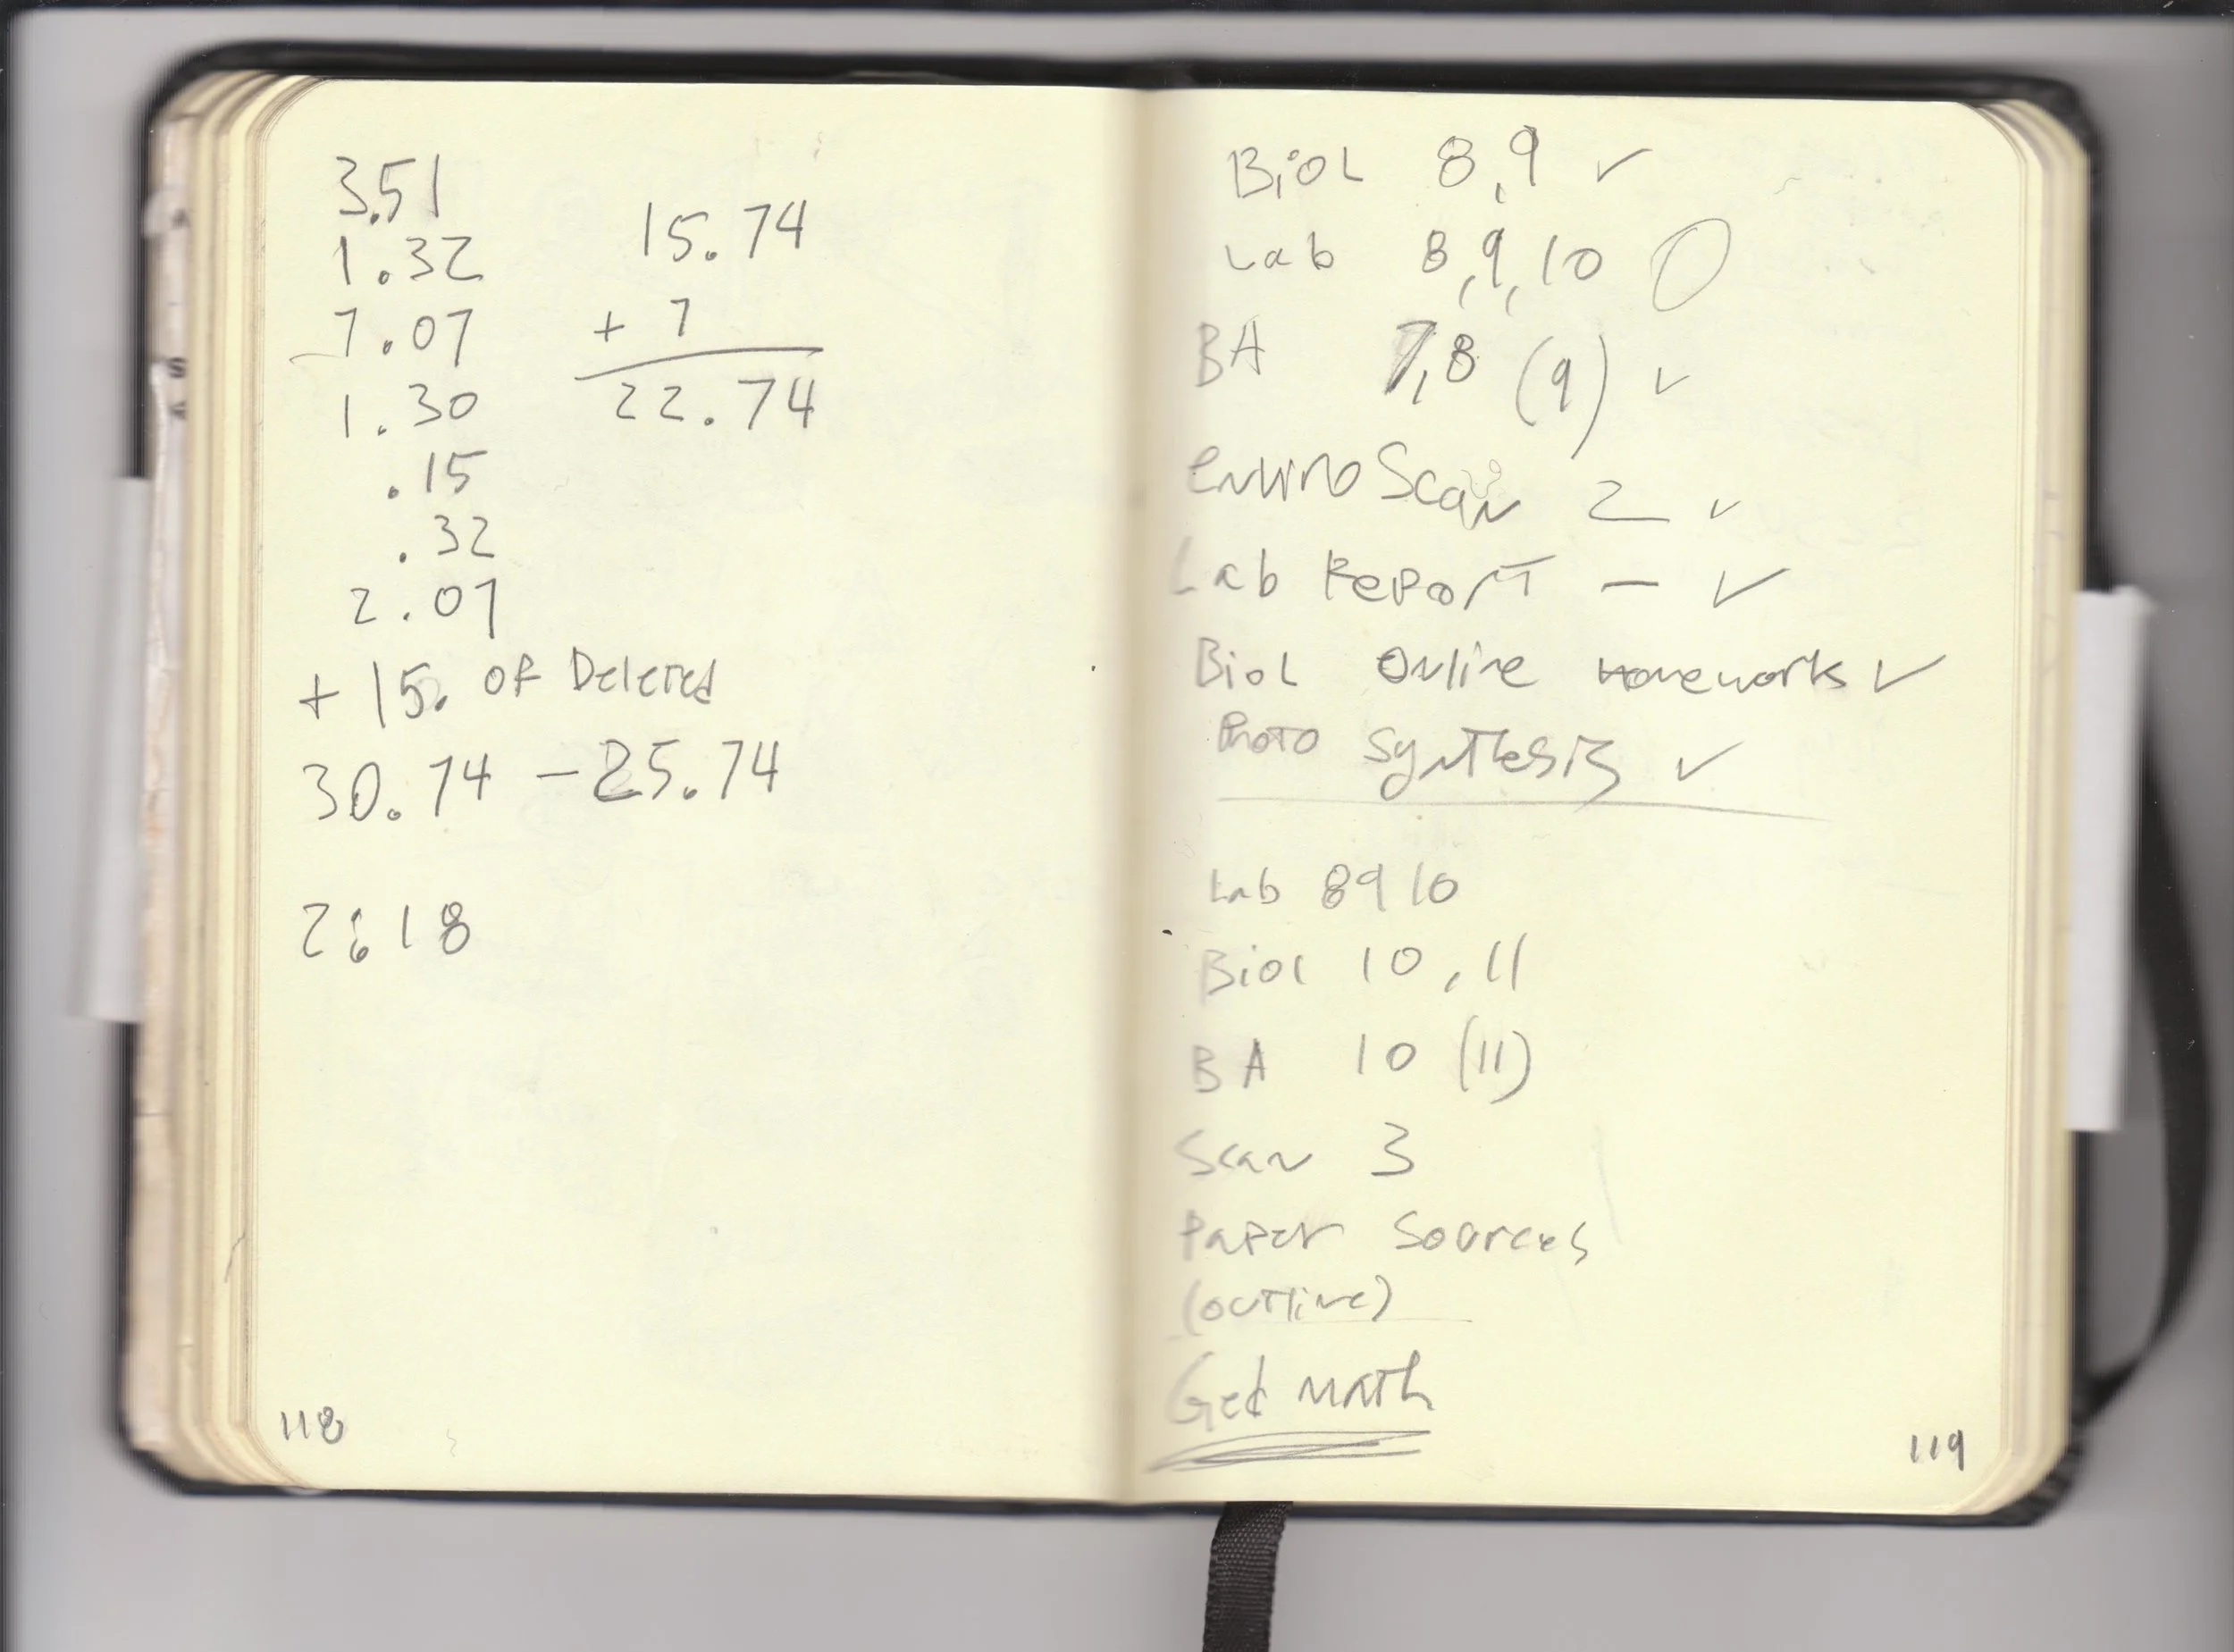 3.51
1.32
7.07
1.30
.15
.32
2.07
+ 15. OF Deleted
30.74 - 25.74
2:18
15.74
+ 7
22.74
118
BioL 8,9 ✓
Lab 8,9,10 O
BA 7,8 (9) ✓
enviro Scan 2 ✓
Lab Report - ✓
BioL Online Homeworks ✓
Photo Synthesis ✓
Lab 8 9 10
Biol 10, 11
BA 10 (11)
Scan 3
Paper Sources
(outline)
Get Math
119